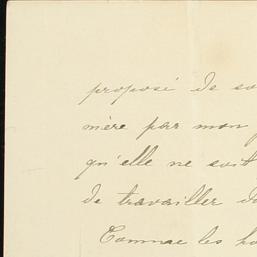 proposé de so
mère par mon
qu'elle ne soit
de travailler d
Comme les ho